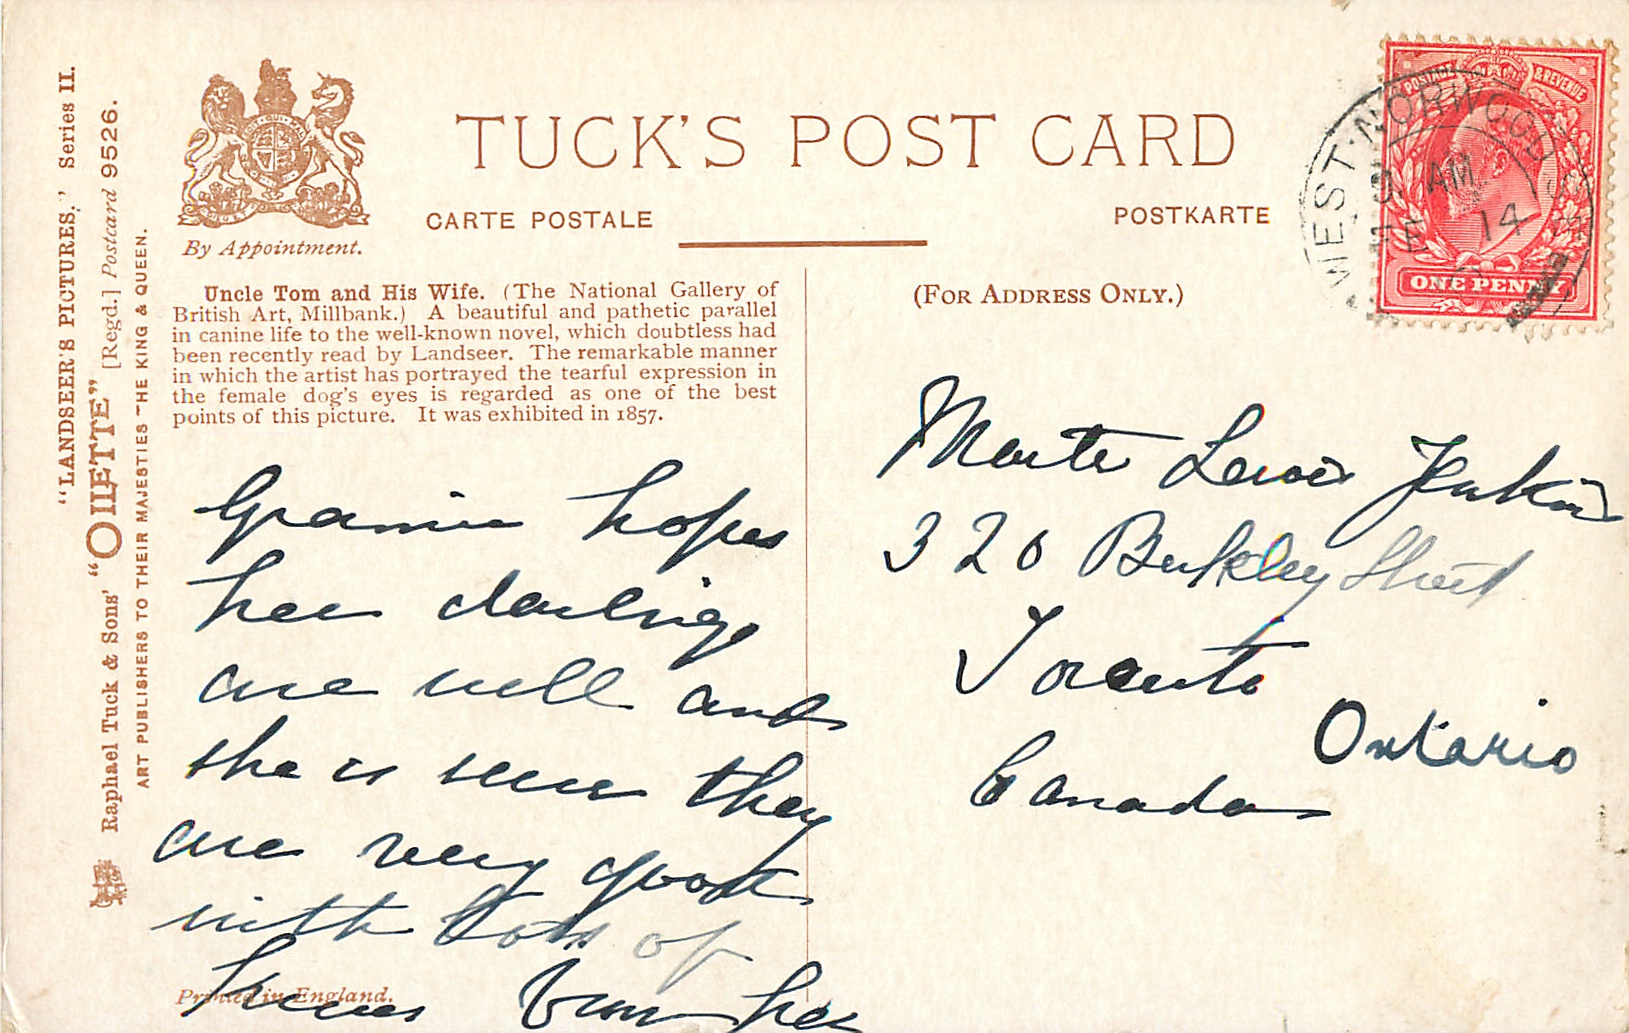 "LANDSEER'S PICTURES," Series II.
Raphael Tuck & Sons' "OILETTE" [Regd.] Postcard 9526.
ART PUBLISHERS TO THEIR MAJESTIES THE KING & QUEEN.
By Appointment.
TUCK'S POST CARD
CARTE POSTALE
POSTKARTE
Uncle Tom and His Wife. (The National Gallery of
British Art, Millbank.) A beautiful and pathetic parallel
in canine life to the well-known novel, which doubtless had
been recently read by Landseer. The remarkable manner
in which the artist has portrayed the tearful expression in
the female dog's eyes is regarded as one of the best
points of this picture. It was exhibited in 1857.
Grannie hopes
her darlings
are well and
she is sure they
are very good
with lots of
kisses from her
Printed in England.
(FOR ADDRESS ONLY.)
POSTAGE & REVENUE
ONE PENNY
WEST NORWOOD
AM
14
Master Lewis Jenkins
320 Berkley Street
Toronto
Ontario
Canada